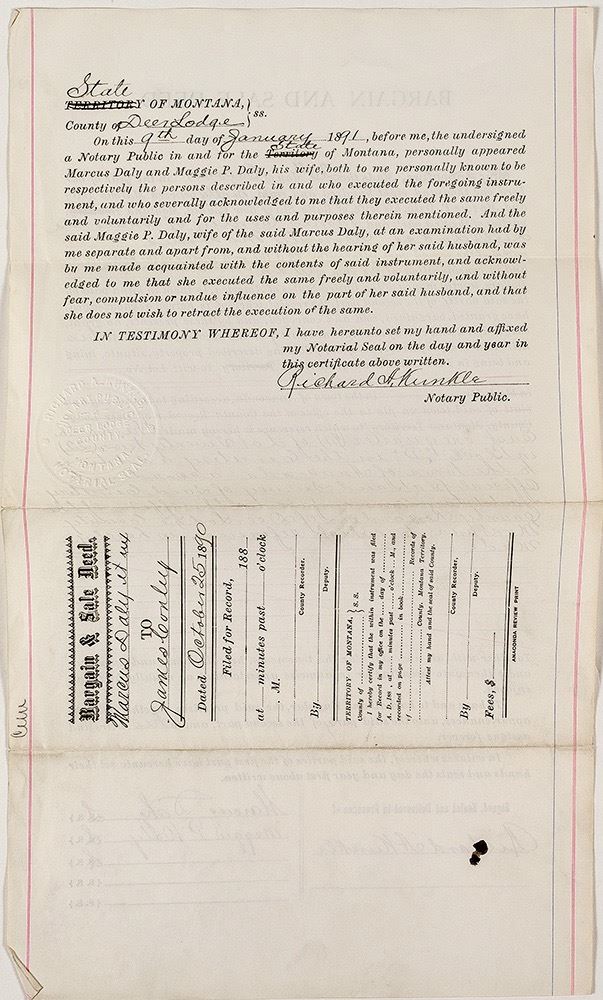 State
TERRITORY OF MONTANA, }
County of Deer Lodge } ss.
On this 9th day of January 1891, before me, the undersigned
State
a Notary Public in and for the Territory of Montana, personally appeared
Marcus Daly and Maggie P. Daly, his wife, both to me personally known to be
respectively the persons described in and who executed the foregoing instru-
ment, and who severally acknowledged to me that they executed the same freely
and voluntarily and for the uses and purposes therein mentioned. And the
said Maggie P. Daly, wife of the said Marcus Daly, at an examination had by
me separate and apart from, and without the hearing of her said husband, was
by me made acquainted with the contents of said instrument, and acknowl-
edged to me that she executed the same freely and voluntarily, and without
fear, compulsion or undue influence on the part of her said husband, and that
she does not wish to retract the execution of the same.
IN TESTIMONY WHEREOF, I have hereunto set my hand and affixed
my Notarial Seal on the day and year in
this certificate above written.
Richard A. Kunkle
Notary Public.
NOTARIAL SEAL
MONTANA
Bargain & Sale Deed.
Marcus Daly et ux
TO
James Conley
Dated October 25 1890
Filed for Record,
188
at minutes past o'clock
M.
County Recorder.
By
Deputy.
TERRITORY OF MONTANA, } S. S.
County of
I hereby certify that the within instrument was filed
for Record in my office on the day of
A. D. 188 , at minutes past o'clock M., and
recorded on page in book Records of
County, Montana Territory.
Attest my hand and the seal of said County.
County Recorder.
By
Deputy.
Fees, $
ANACONDA REVIEW PRINT